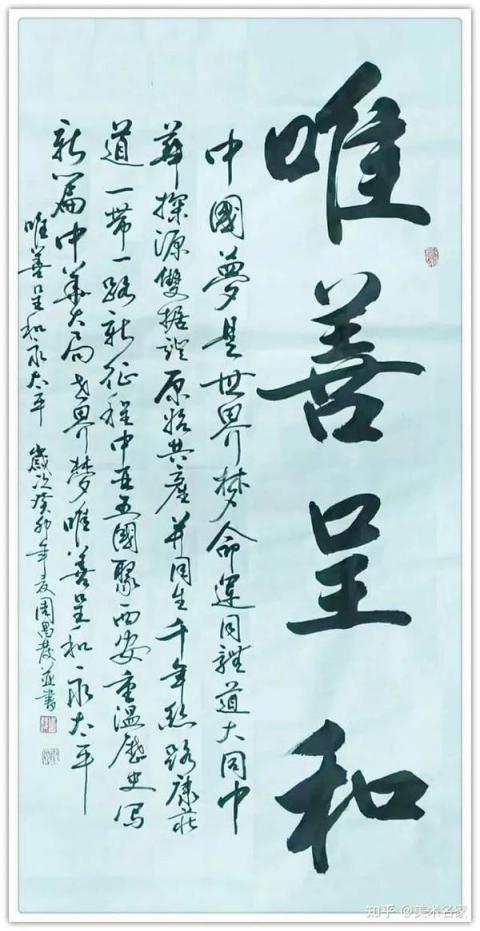 唯善呈和
中國夢是世界梦命運同體道大同中
華探源雙据證原始共産并同生千年絲路康莊
道一帶一路新征程中亚五國聚西安重溫歷史写
新篇中華大局世界梦唯善呈和永太平
唯善呈和永太平 歲次癸卯年夏周昌發並書
知乎 @美术名家